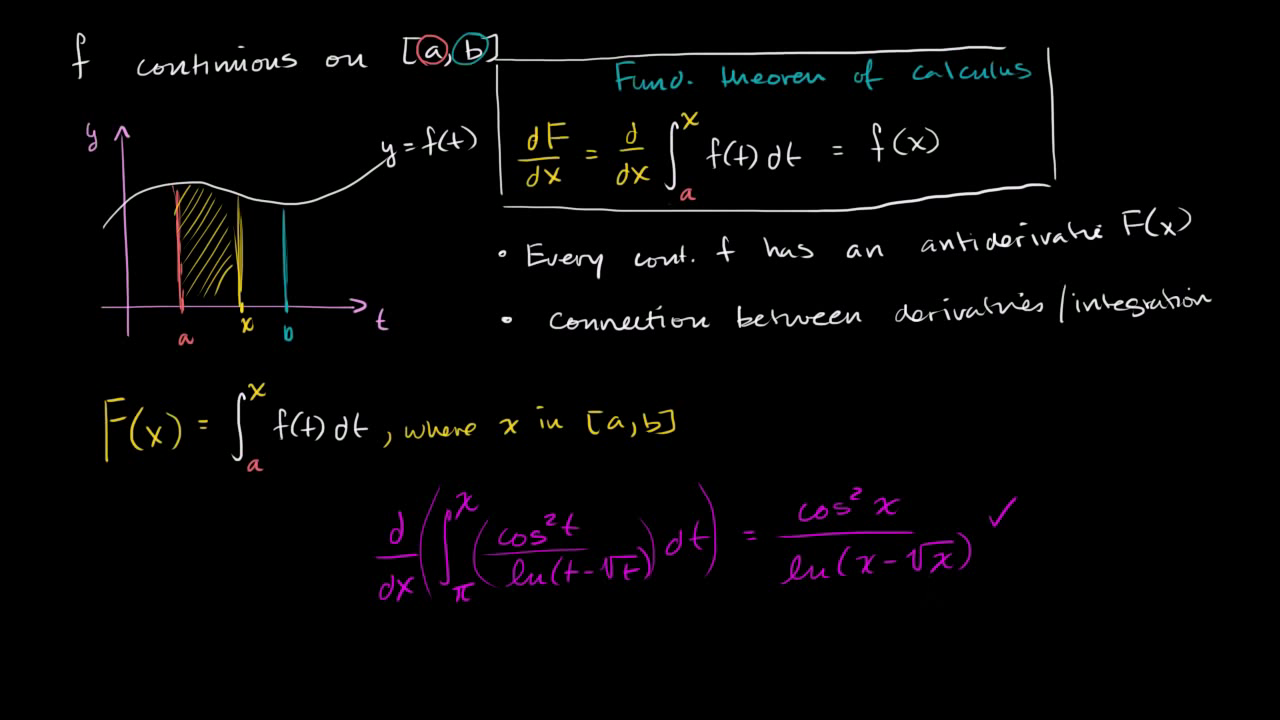 f continuous on [a, b]
Fund. theorem of calculus
dF/dx = d/dx ∫_a^x f(t) dt = f(x)
y
y = f(t)
a x b
t
• Every cont. f has an antiderivative F(x)
• connection between derivatives/integration
F(x) = ∫_a^x f(t) dt, where x in [a,b]
d/dx (∫_π^x (cos²t / ln(t-√t)) dt) = cos²x / ln(x-√x) ✓